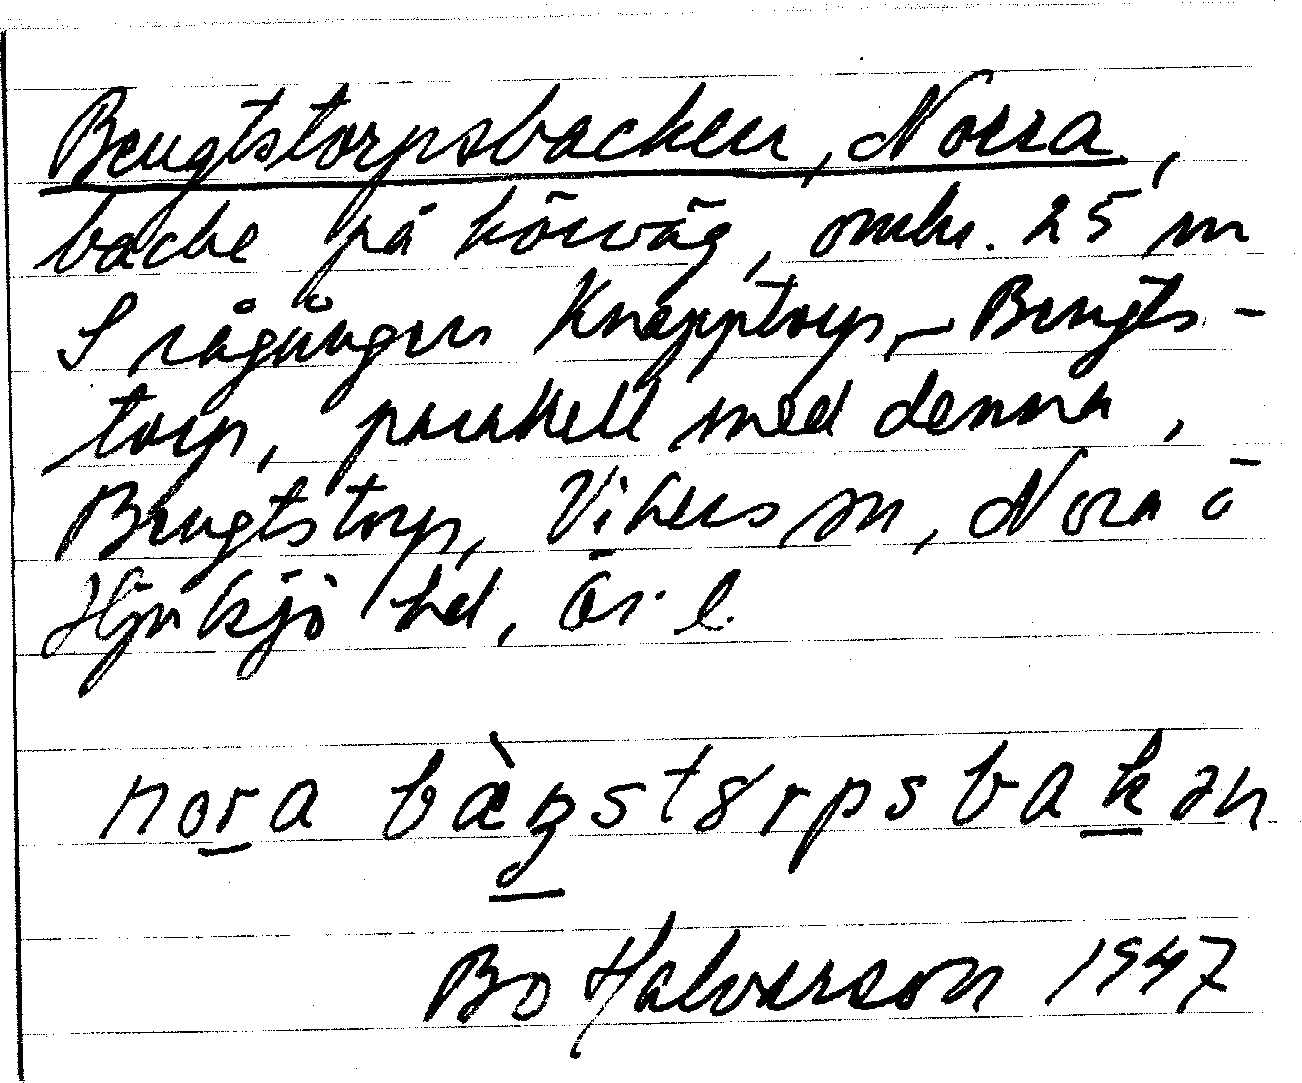 Bengtstorpsbacken, Norra,
backe på körväg, omkr. 25 m
S rågången Knepptorp – Bengts-
torp, parallell med denna,
Bengtstorp, Vikers sn, Nora o
Hjulsjö hd, Ör. l.
nora bæ̀ŋstɤrpsbakən
Bo Halvarson 1947